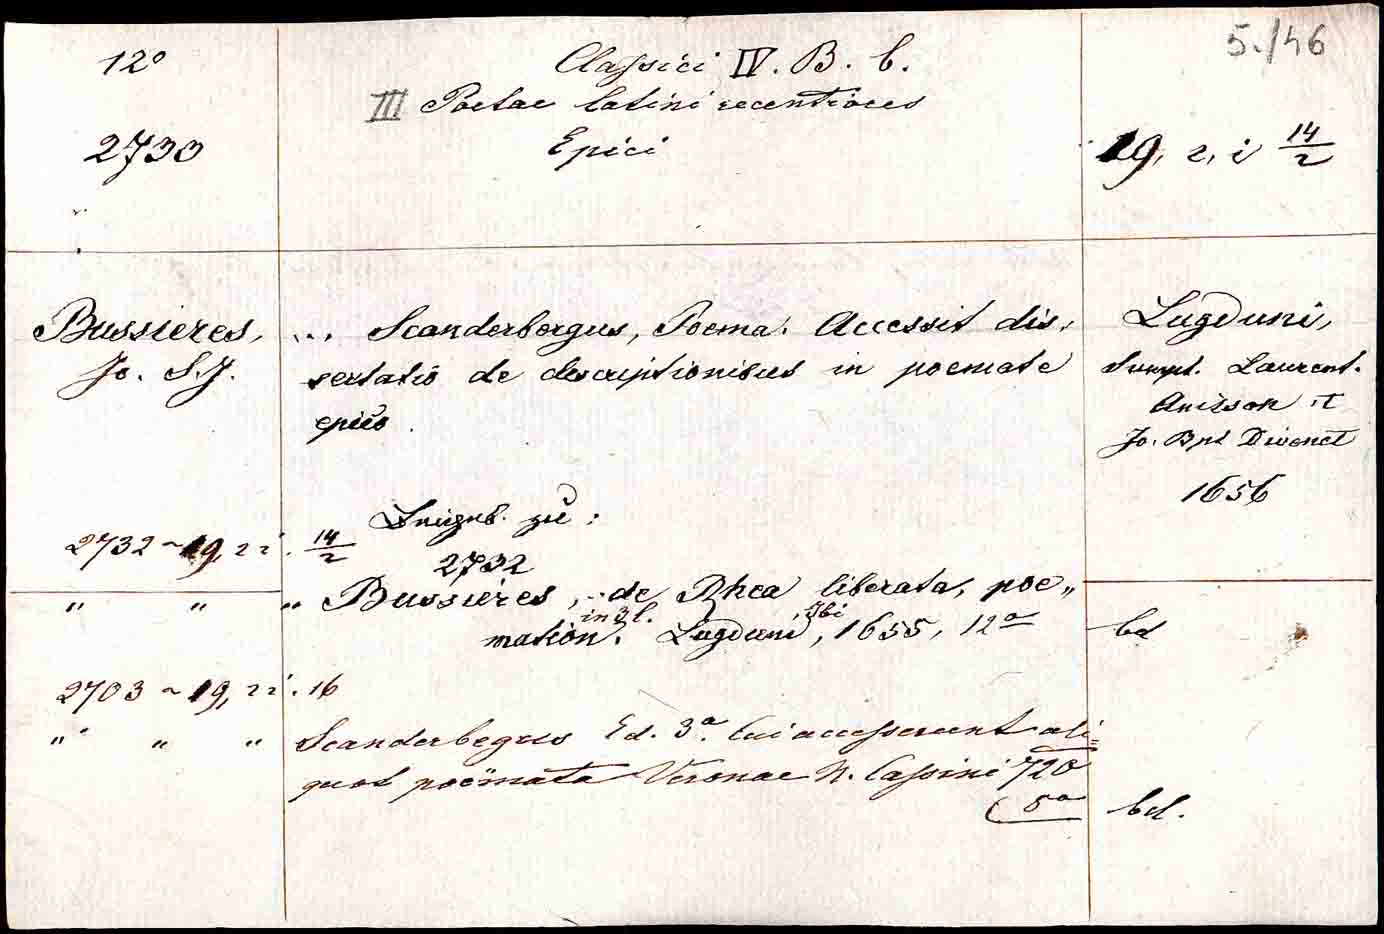 12°
Classici IV. B. b.
5./46
III Poetae latini recentiores
2733
Epici
19, 2, i 14/2
Bussieres,
Jo. S.J.
... Scanderbergus, Poema. Accessit dis-
sertatio de descriptionibus in poemate
epico.
Lugduni,
sumpt. Laurent.
Anisson et
Jo. Bpt Divenet
1656
zu:
2732 ~ 19, 2 i. 14/2
2732
" " " Bussieres, .. de Rhea liberata, poe„
in 3 l. Ibi
mation. Lugduni, 1655, 12° bd
2703 ~ 19, 2 i. 16
" " " Scanderbegus Ed. 3a. Cui accesserunt ali=
quot poëmata Veronae N. Cassini 720
(8° bd.